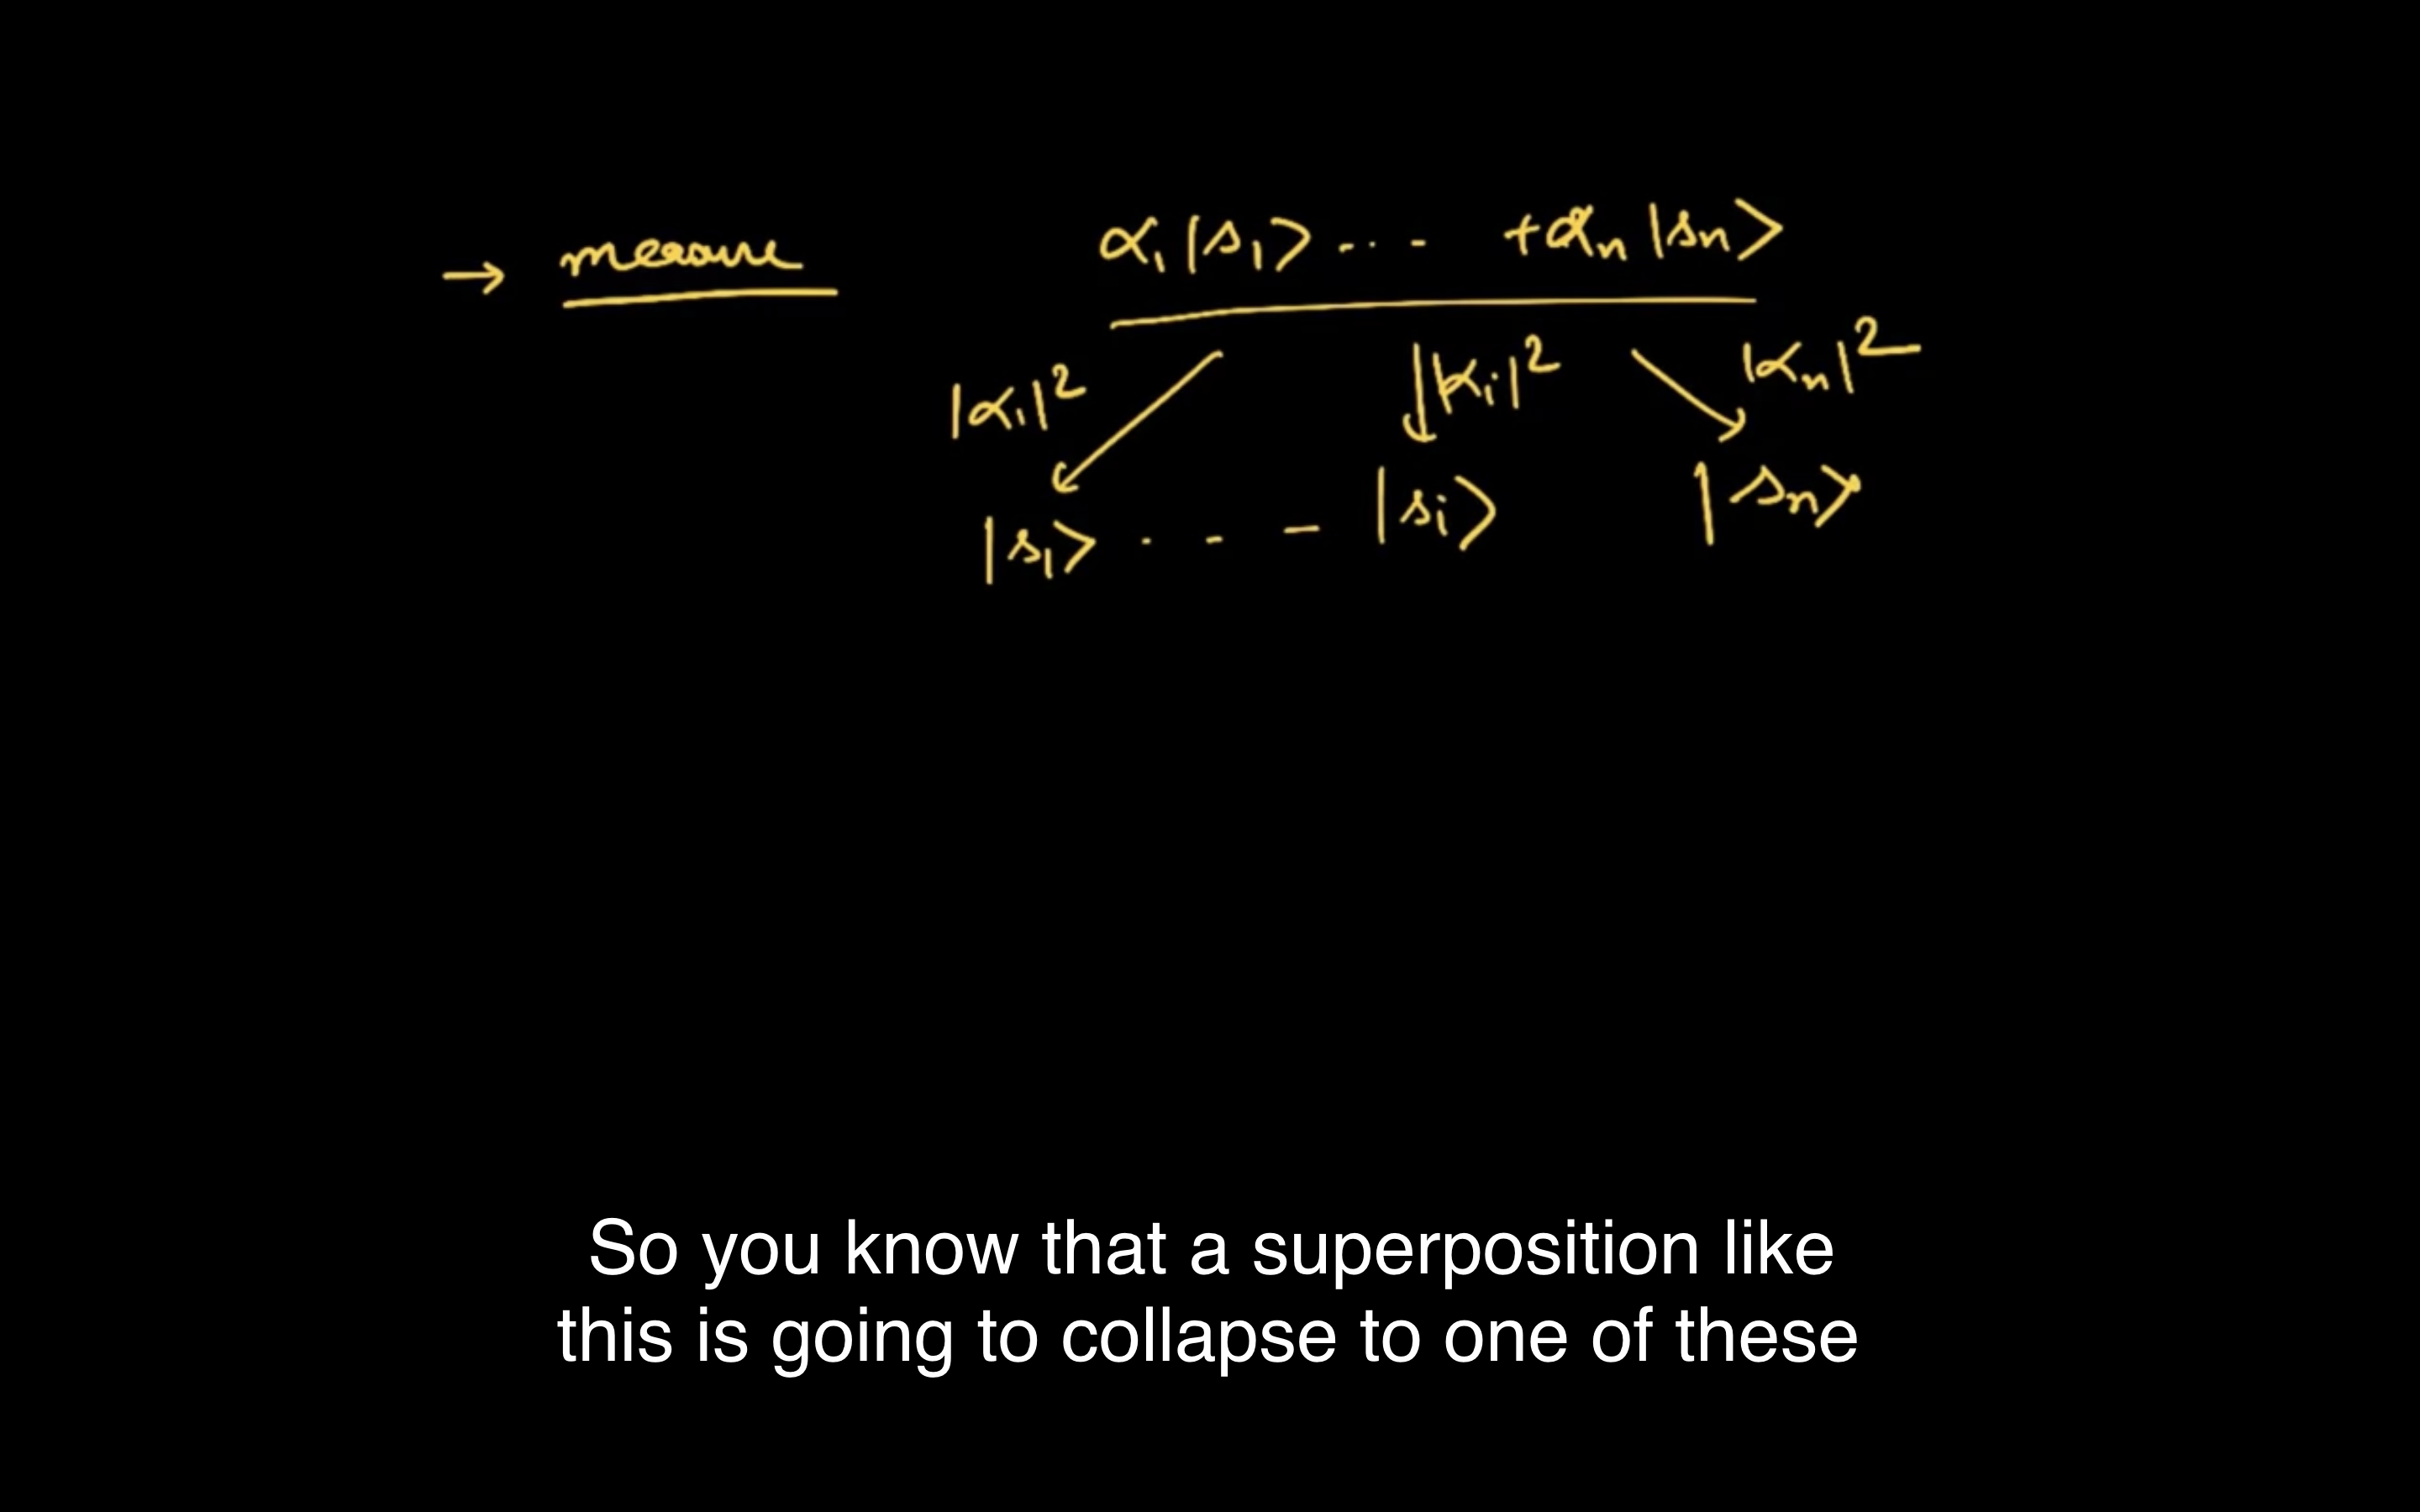 → measure α₁|s₁> ... +αₙ|sₙ>
|α₁|² |αᵢ|² |αₙ|²
|s₁> . - - |sᵢ> |sₙ>
So you know that a superposition like
this is going to collapse to one of these